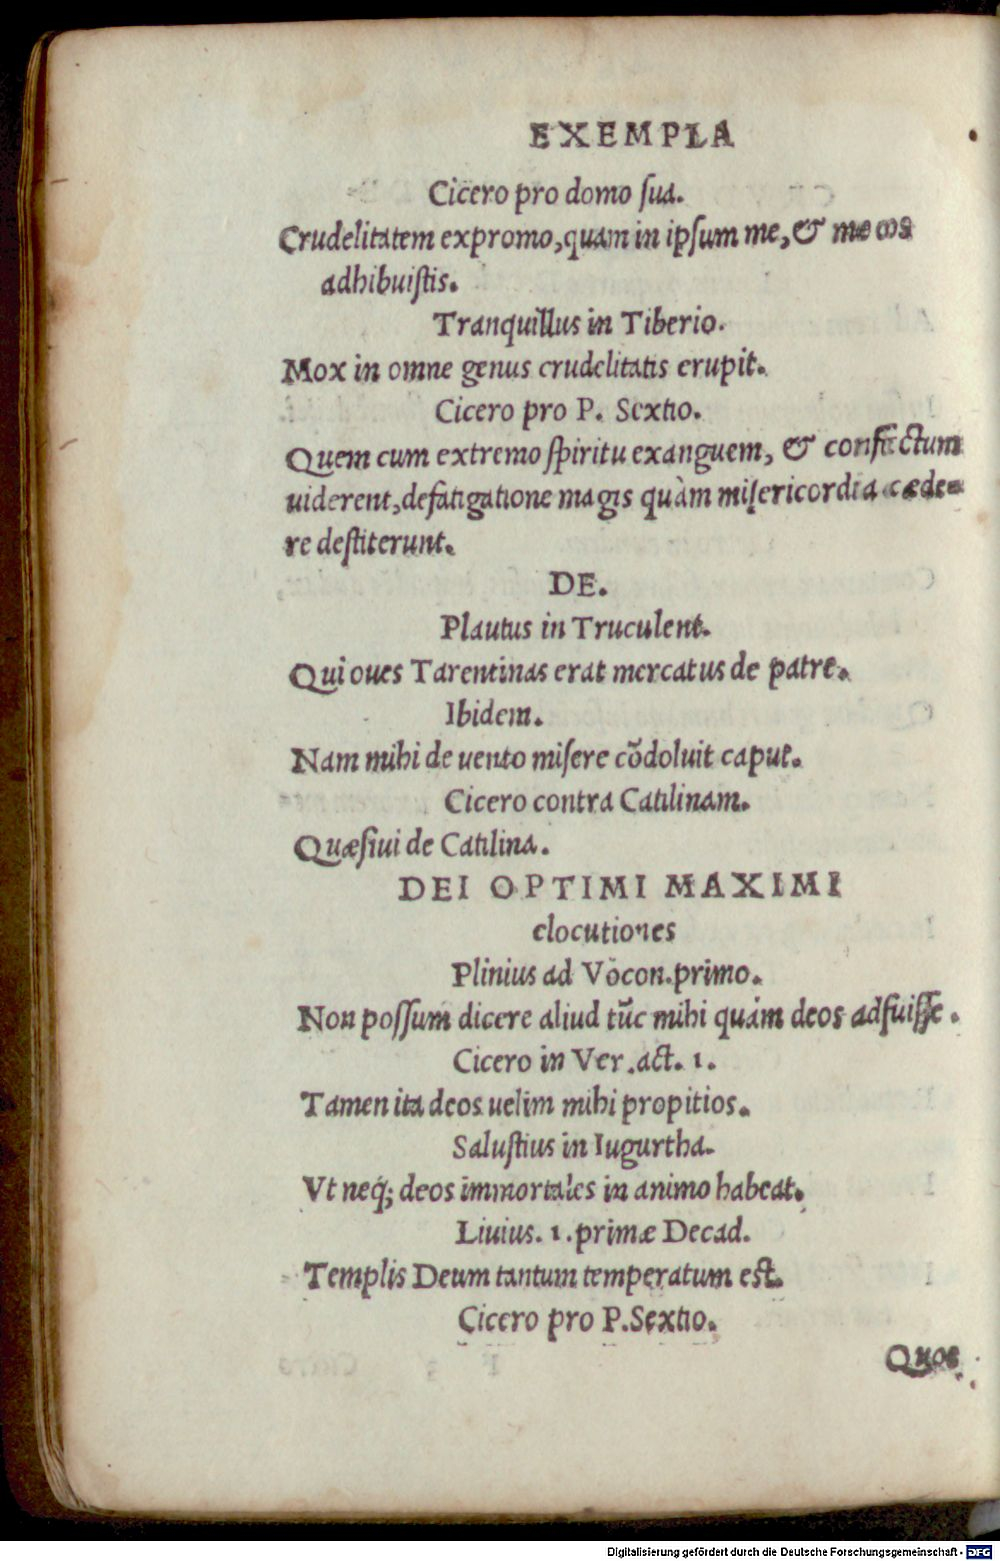 EXEMPLA
Cicero pro domo ſua.
Crudelitatem expromo, quam in ipſum me, & meos
adhibuiſtis.
Tranquillus in Tiberio.
Mox in omne genus crudelitatis erupit.
Cicero pro P. Sextio.
Quem cum extremo ſpiritu exanguem, & confectum
uiderent, defatigatione magis quàm miſericordia cæde-
re deſtiterunt.
DE.
Plautus in Truculent.
Qui oues Tarentinas erat mercatus de patre.
Ibidem.
Nam mihi de uento miſere cõdoluit caput.
Cicero contra Catilinam.
Quæſiui de Catilina.
DEI OPTIMI MAXIMI
elocutiones
Plinius ad Vocon. primo.
Non poſſum dicere aliud tũc mihi quàm deos adfuiſſe.
Cicero in Ver. act. 1.
Tamen ita deos uelim mihi propitios.
Saluſtius in Iugurtha.
Vt neq; deos immortales in animo habeat.
Liuius. 1. primæ Decad.
Templis Deum tantum temperatum est.
Cicero pro P. Sextio.
Quos
Digitalisierung gefördert durch die Deutsche Forschungsgemeinschaft - DFG